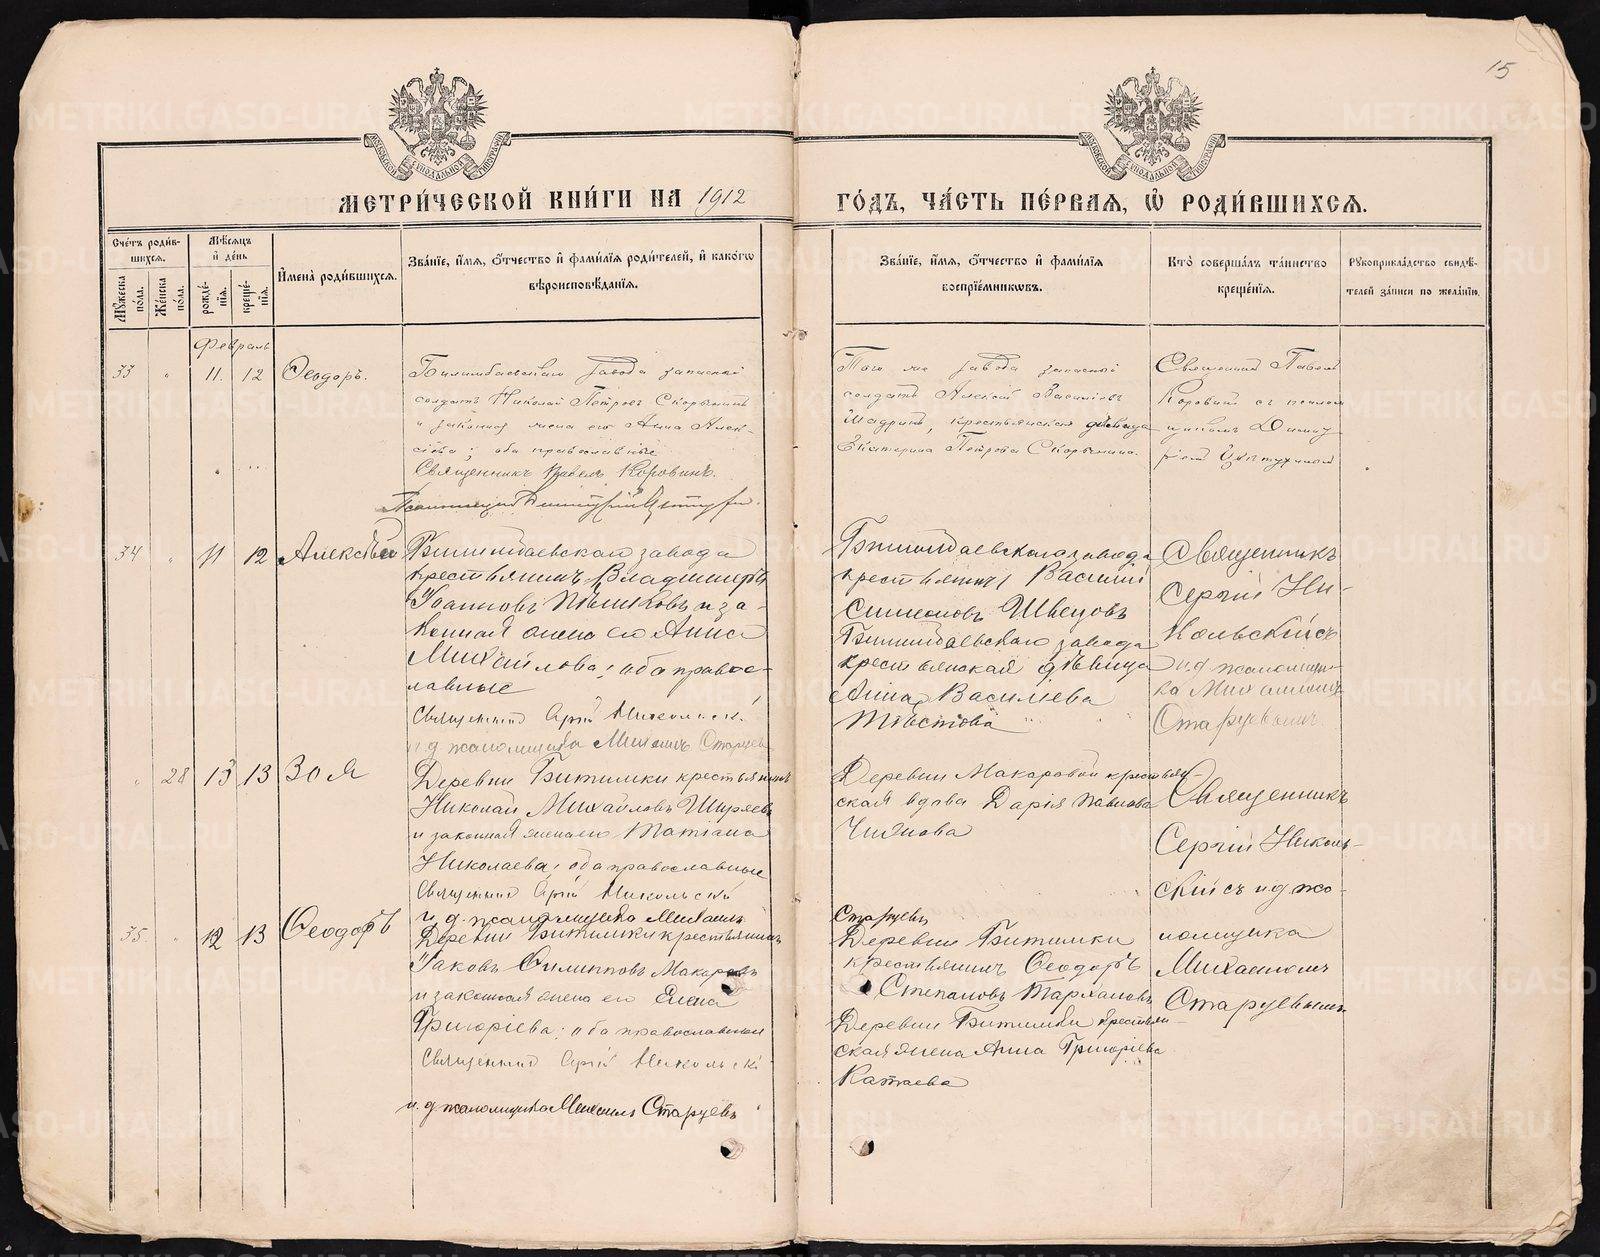 15
МОСКОВСКОЙ СѴНОДАЛЬНОЙ ТИПОГРАФІИ
МОСКОВСКОЙ СѴНОДАЛЬНОЙ ТИПОГРАФІИ
МЕТРИ́ЧЕСКОЙ КНИ́ГИ НА 1912
ГО́ДЪ, ЧА́СТЬ ПЕ́РВАЯ, Ѡ҆ РОДИ́ВШИХСЯ.
Сче́тъ роди́вшихся.
Мꙋ́жеска по́ла.
Же́нска по́ла.
Мѣ́сяцъ и҆ де́нь
рожде́нїя.
креще́нїя.
И҆мена̀ роди́вшихся.
Зва́нїе, и҆́мя, ѻ҆́тчество и҆ фами́лїя роди́телей, и҆ како́гѡ
вѣроисповѣ́данїя.
Зва́нїе, и҆́мя, ѻ҆́тчество и҆ фами́лїя
воспрїе́мникѡвъ.
Кто̀ соверша́лъ та́инство
креще́нїя.
Рꙋкоприкла́дство свидѣ́-
телей за́писи по жела́нїю.
Февраль
33 " 11. 12 Ѳеодоръ.
Билимбаевскаго завода запасный
солдатъ Николай Петровъ Скорынинъ
и законная жена его Анна Алек-
сіева; оба православные
Священникъ Павелъ Коровинъ.
Псаломщикъ
Того же завода запасный
солдатъ Алексій Васильевъ
Шадринъ, крестьянская дѣвица
Екатерина Петрова Скорынина.
Священникъ Павелъ
Коровинъ съ псалом
щикомъ Димит
ріемъ
34 " 11 12 Алексѣй
Билимбаевскаго завода
крестьянинъ Владимиръ
Іоанновъ и за-
конная жена его Анна
Михайлова; оба правос-
лавные
Священникъ Сергій Никольскій
и.д псаломщика Михаилъ Старцевъ
Билимбаевскаго завода
крестьянинъ Василій
Симеоновъ Швецовъ
Билимбаевскаго завода
крестьянская дѣвица
Анна Васильева
Священникъ
Сергій Ни-
кольскій съ
и.д псаломщи-
ка Михаиломъ
Старцевымъ.
" 28 13 13 Зоя
Деревни Битимки крестьянинъ
Николай Михайловъ Ширяевъ
и законная жена его Татіана
Николаева; оба православные
Священникъ Сергій Никольскій
и.д. псаломщика Михаилъ
Старцевъ
Деревни Макаровой крестьян-
ская вдова Дарія Павлова
Священникъ
Сергій Николь-
скій съ и.д пса-
ломщика
Михаиломъ
Старцевымъ
35. " 12 13 Ѳеодоръ
Деревни Битимки крестьянинъ
Іаковъ Филипповъ Макаровъ
и законная жена его Елена
Григоріева; оба православные
Священникъ Сергій Никольскій
и.д псаломщика Михаилъ Старцевъ
Деревни Битимки
крестьянинъ Ѳеодоръ
Степановъ Тархановъ
Деревни Битимки крестьян-
ская жена Анна Григоріева
Катаева
METRIKI.GASO-URAL.RU